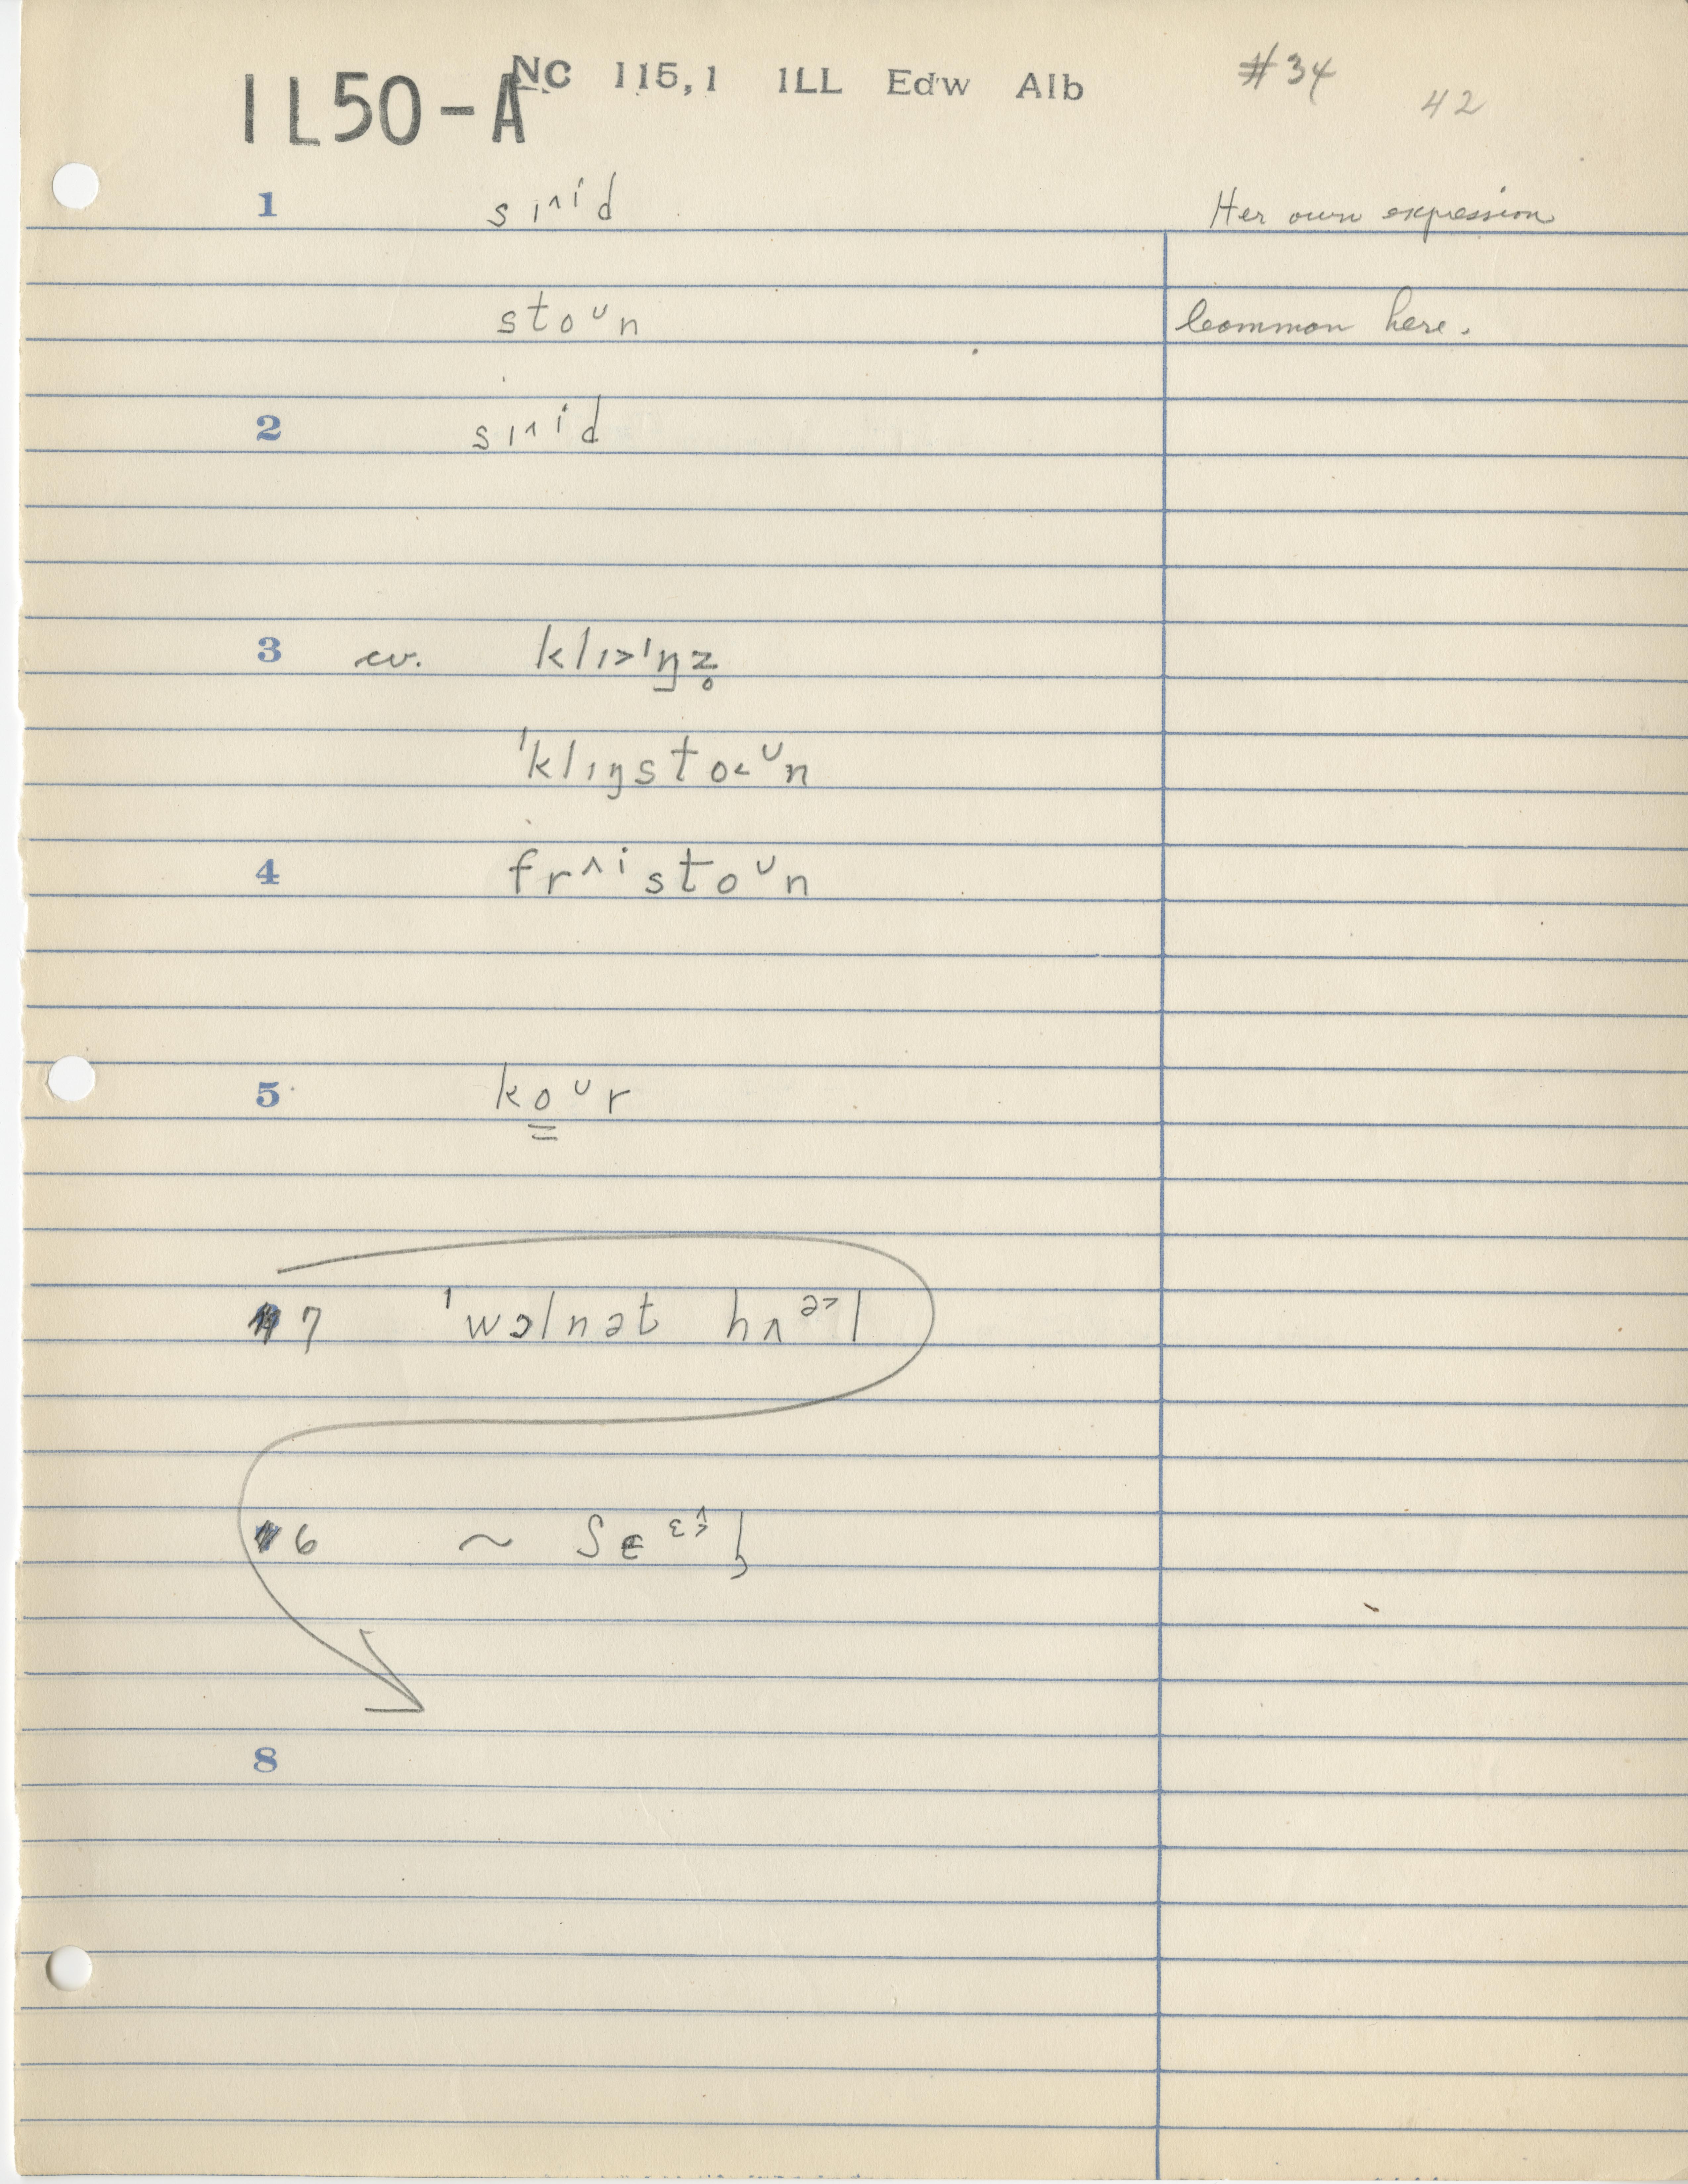 IL50-A NC 115,1 ILL Edw Alb #34 42
1 sɪ^id Her own expression
stoᴜn Common here.
2 sɪ^id
3 cv. klɪ>ᶦŋz̥
ˈklɪŋsto<ᶸn
4 frʌistoᶸn
5 koᶸr
7 ˈwɔlnət hʌᵊ>l
6 ~ ʃɛ
8